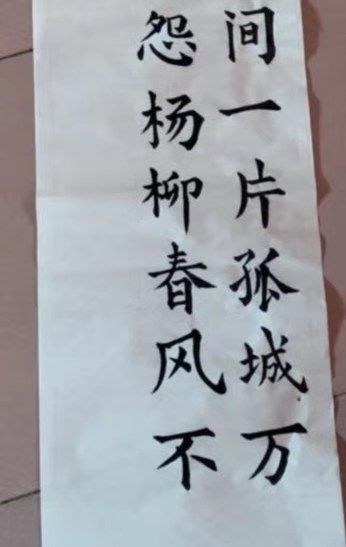 间一片孤城万
怨杨柳春风不